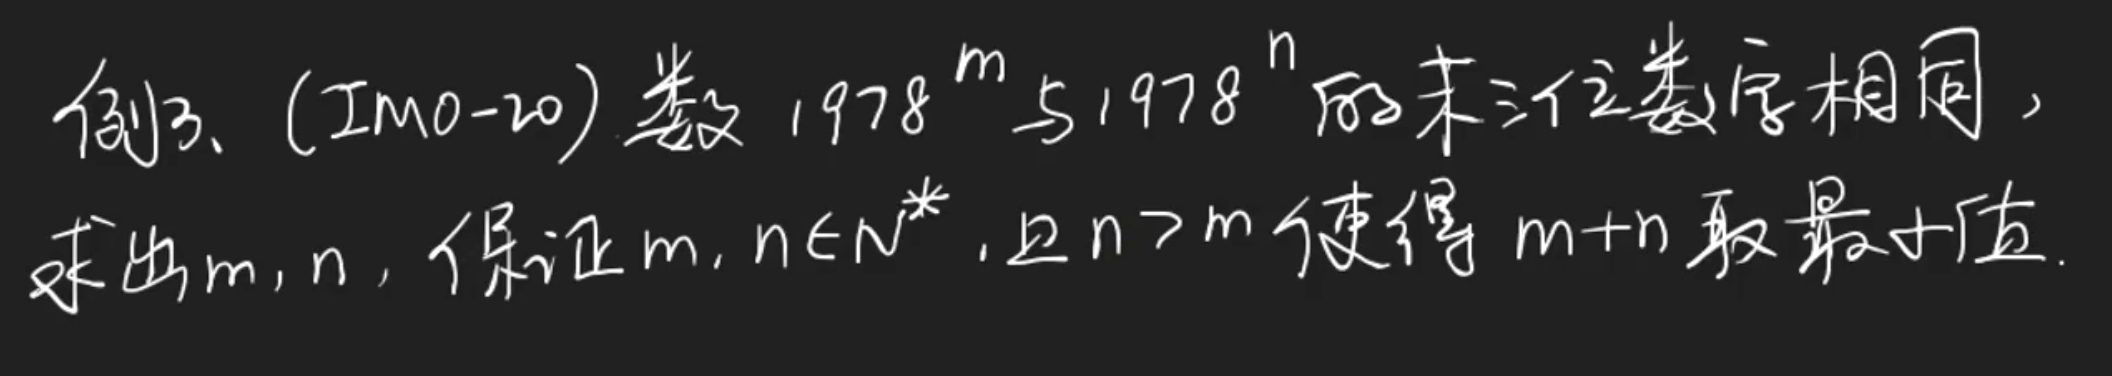 例3、(IMO-20) 数 1978^m 与 1978^n 的末三位数字相同，
求出m, n, 保证m, n∈N*, 且n>m使得 m+n 取最小值.